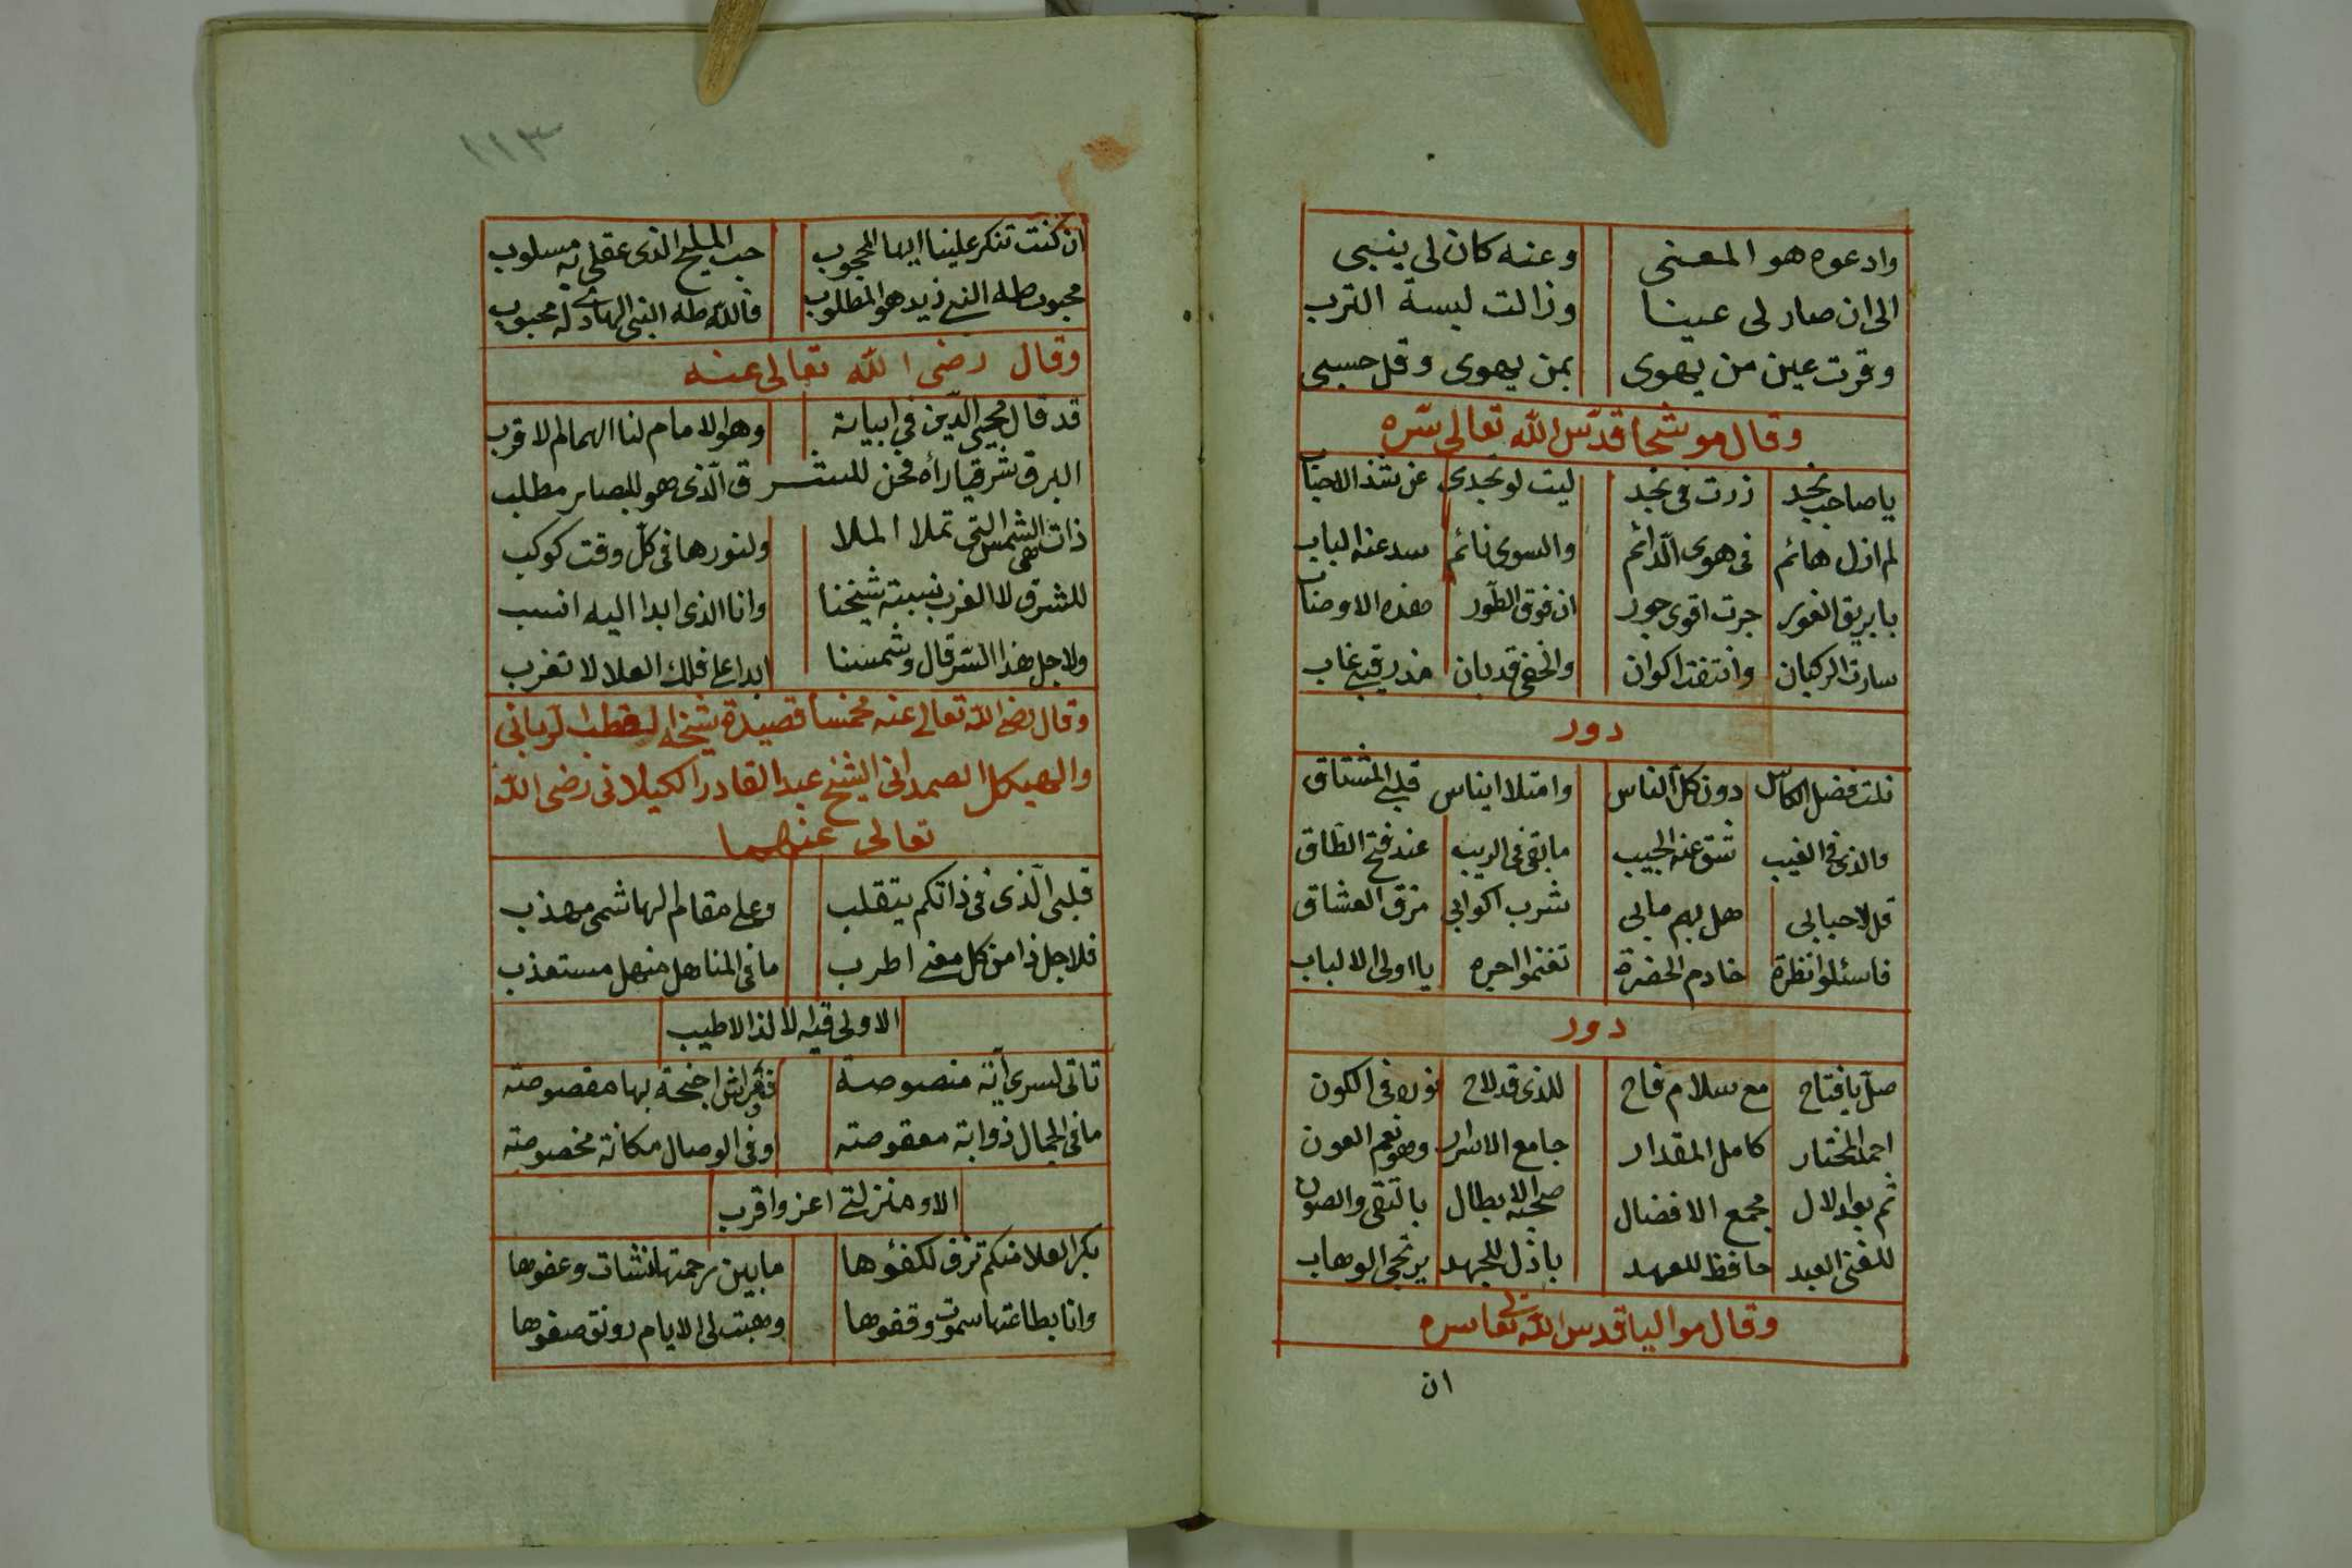 وادعوه هو المعنى وعنه كان لى ينبى
الى ان صار لى عينا وزالت لبسة الترب
وقرت عين من يهوى بمن يهوى وقل حسبى
وقال موشحا قدّس الله تعالى سّره
يا صاحب نجد زرت فى نجد ليت لو تجدى عن شذا الاحباب
لم ازل هائم فى هوى الدّائم والسوى نائم سد عنه الباب
يا بريق الغور جرت اقوى جور ان فوق الطّور هذه الاوصاب
سارت الركبان وانتفت اكوان والخفى قد بان مذ رقيبى غاب
دور
نلت فضل الكاس دون كلّ الناس وامتلا ايناس قلبى المشتاق
والذى فى الغيب شق عنه الجيب ما بقى فى الريب عند فتح الطاق
قل لاحبابى هل بهم مابى شرب اكوابى مزق العشاق
فاسئلوا نظرة خادم الحضرة تغنموا اجره يا اولى الالباب
دور
صلّ يا فتاح مع سلام فاح للذى قد لاح نوره فى الكون
احمد المختار كامل المقدار جامع الاسرار وهو نعم العون
ثم بعد لال مجمع الافضال صحبه الابطال بالتقى والصون
للغنى العبد حافظ للعهد باذل للجهد يرتجى الوهاب
وقال مواليا قدس الله تعالى سره
ان
١١٣
ان كنت تنكر علينا ايها المحجوب حب المليح الذى عقلى به مسلوب
محبوب طه النبى زيد هو المطلوب فالله طه النبى الهادى له محبوب
وقال رضى الله تعالى عنه
قد قال محيى الدّين فى ابياته وهو الامام لنا الهمام الاقرب
البرق شرقيا رأه فحن للشرق الّذى هو للبصاير مطلب
ذات هى الشمس التى تملا الملا ولنورها فى كلّ وقت كوكب
للشرق لا الغرب نسبة شيخنا وانا الذى ابدا اليه انسب
ولاجل هذا الشرق قال وشمسنا ابدا على فلك العلا لا تغرب
وقال رضى الله تعالى عنه مخمسا قصيدة شيخه القطب الربانى
والهيكل الصمدانى الشيخ عبد القادر الكيلانى رضى الله
تعالى عنهما
قلبى الّذى فى ذاتكم يتقلب وعلى مقام الهاشمى مهذب
فلاجل ذا من كل معنى اطرب ما فى المناهل منهل مستعذب
الا ولى فيه الالذ الاطيب
تاتى لسرى آية منصوصة ففراش اجنحة بها مقصوصة
ما فى الجمال ذوابة معقوصة وفى الوصال مكانة مخصوصة
الا ومنزلتى اعز واقرب
بكر العلا منكم تزف لكفؤها ما بين رحمتها نشات وعفوها
وانا بطاعتها سموت وقفوها وهبت لى الايام رونق صفوها